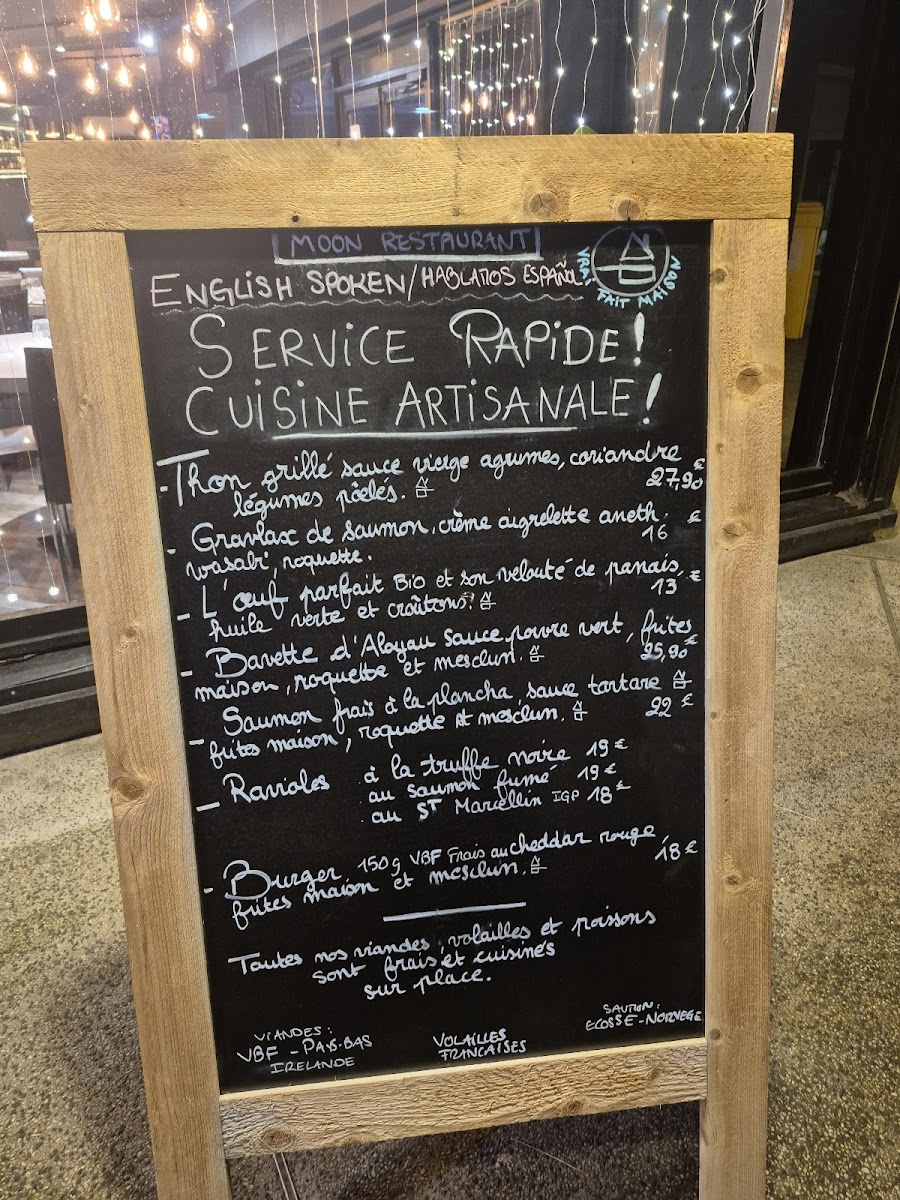 MOON RESTAURANT
ENGLISH SPOKEN/HABLAMOS ESPAÑOL
VRAI FAIT MAISON
SERVICE RAPIDE!
CUISINE ARTISANALE!
-Thon grillé sauce vierge agrumes, coriandre
légumes poêlés. 27,90€
- Gravlax de saumon, crème aigrelette aneth,
wasabi, roquette. 16 €
- L'œuf parfait BIO et son velouté de panais,
huile verte et croûtons. 13 €
- Bavette d'Aloyau sauce poivre vert, frites
maison, roquette et mesclun. 25,90€
- Saumon frais à la plancha, sauce tartare
frites maison, roquette et mesclun. 22 €
- Ravioles à la truffe noire 19€
au saumon fumé 19€
au ST Marcellin IGP 18€
- Burger 150g VBF Frais au cheddar rouge,
frites maison et mesclun. 18€
Toutes nos viandes, volailles et poissons
sont frais et cuisinés
sur place.
VIANDES:
VBF - PAYS-BAS
IRELANDE
VOLAILLES
FRANCAISES
SAUMON:
ECOSSE-NORVEGE